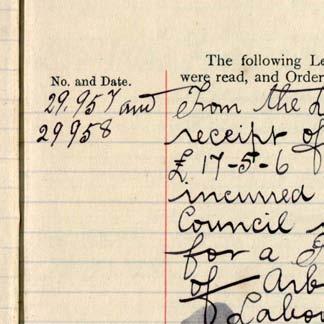 The following Le
No. and Date.
were read, and Order
29.957 and
29958
From the L
receipt of
£ 17-5-6
incurred
Council
for a
of Arb
Labou